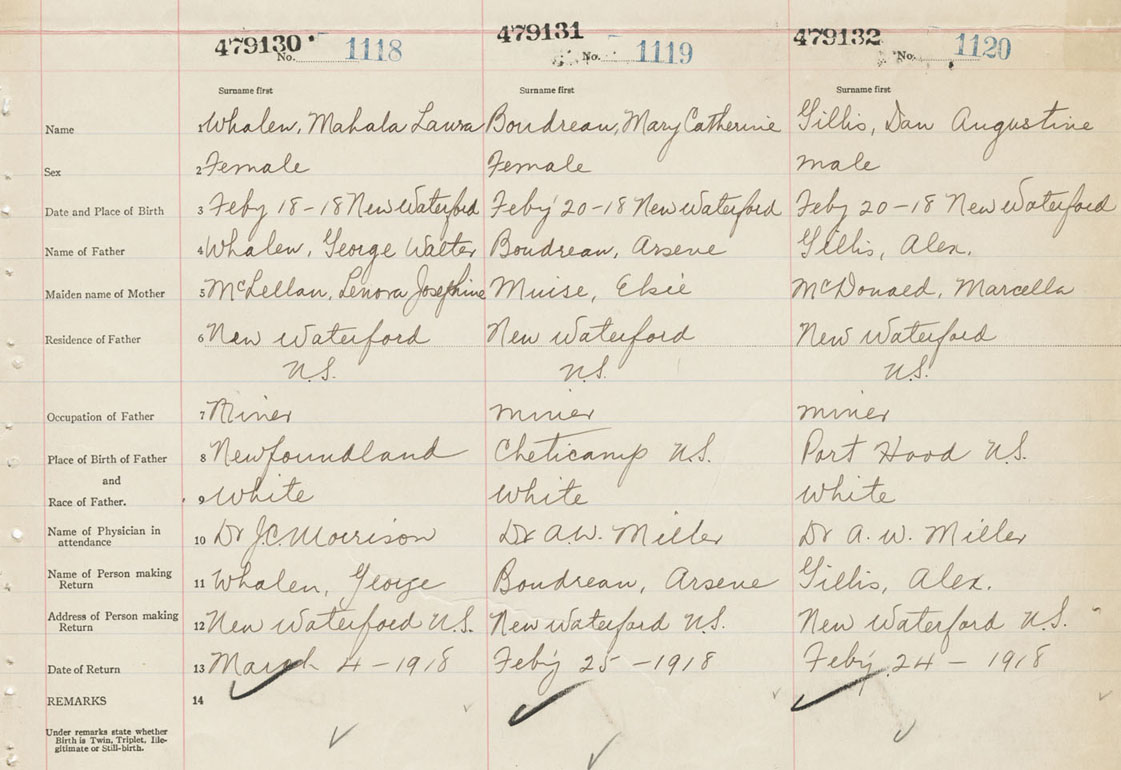 479130 479131 479132
No. 1118 No. 1119 No. 1120
Surname first Surname first Surname first
Name 1 Whalen, Mahala Laura Boudreau, Mary Catherine Gillis, Dan Augustine
Sex 2 Female Female male
Date and Place of Birth 3 Feby 18-18 New Waterford Feby 20-18 New Waterford Feby 20-18 New Waterford
Name of Father 4 Whalen, George Walter Boudreau, Arsene Gillis, Alex.
Maiden name of Mother 5 McLellan, Lenora Josephine Muise, Elsie McDonald, Marcella
Residence of Father 6 New Waterford New Waterford New Waterford
N.S. N.S. N.S.
Occupation of Father 7 Miner miner miner
Place of Birth of Father 8 Newfoundland Cheticamp N.S. Port Hood N.S.
and
Race of Father. 9 White White White
Name of Physician in
attendance 10 Dr J.C. Morrison Dr A.W. Miller Dr A. W. Miller
Name of Person making
Return 11 Whalen, George Boudreau, Arsene Gillis, Alex.
Address of Person making
Return 12 New Waterford N.S. New Waterford N.S. New Waterford N.S.
Date of Return 13 March 4-1918 Feby 25-1918 Feby 24-1918
REMARKS 14
Under remarks state whether
Birth is Twin, Triplet, Ille-
gitimate or Still-birth.